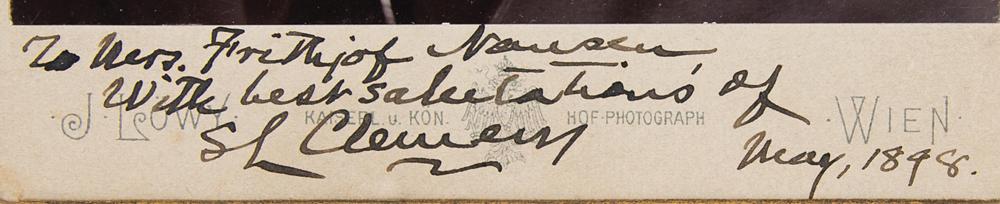 To Mrs. Fridtjof Nansen,
With best salutations of
SL Clemens
May, 1898.
J. LÖWY KAISERL. u. KON. HOF-PHOTOGRAPH WIEN